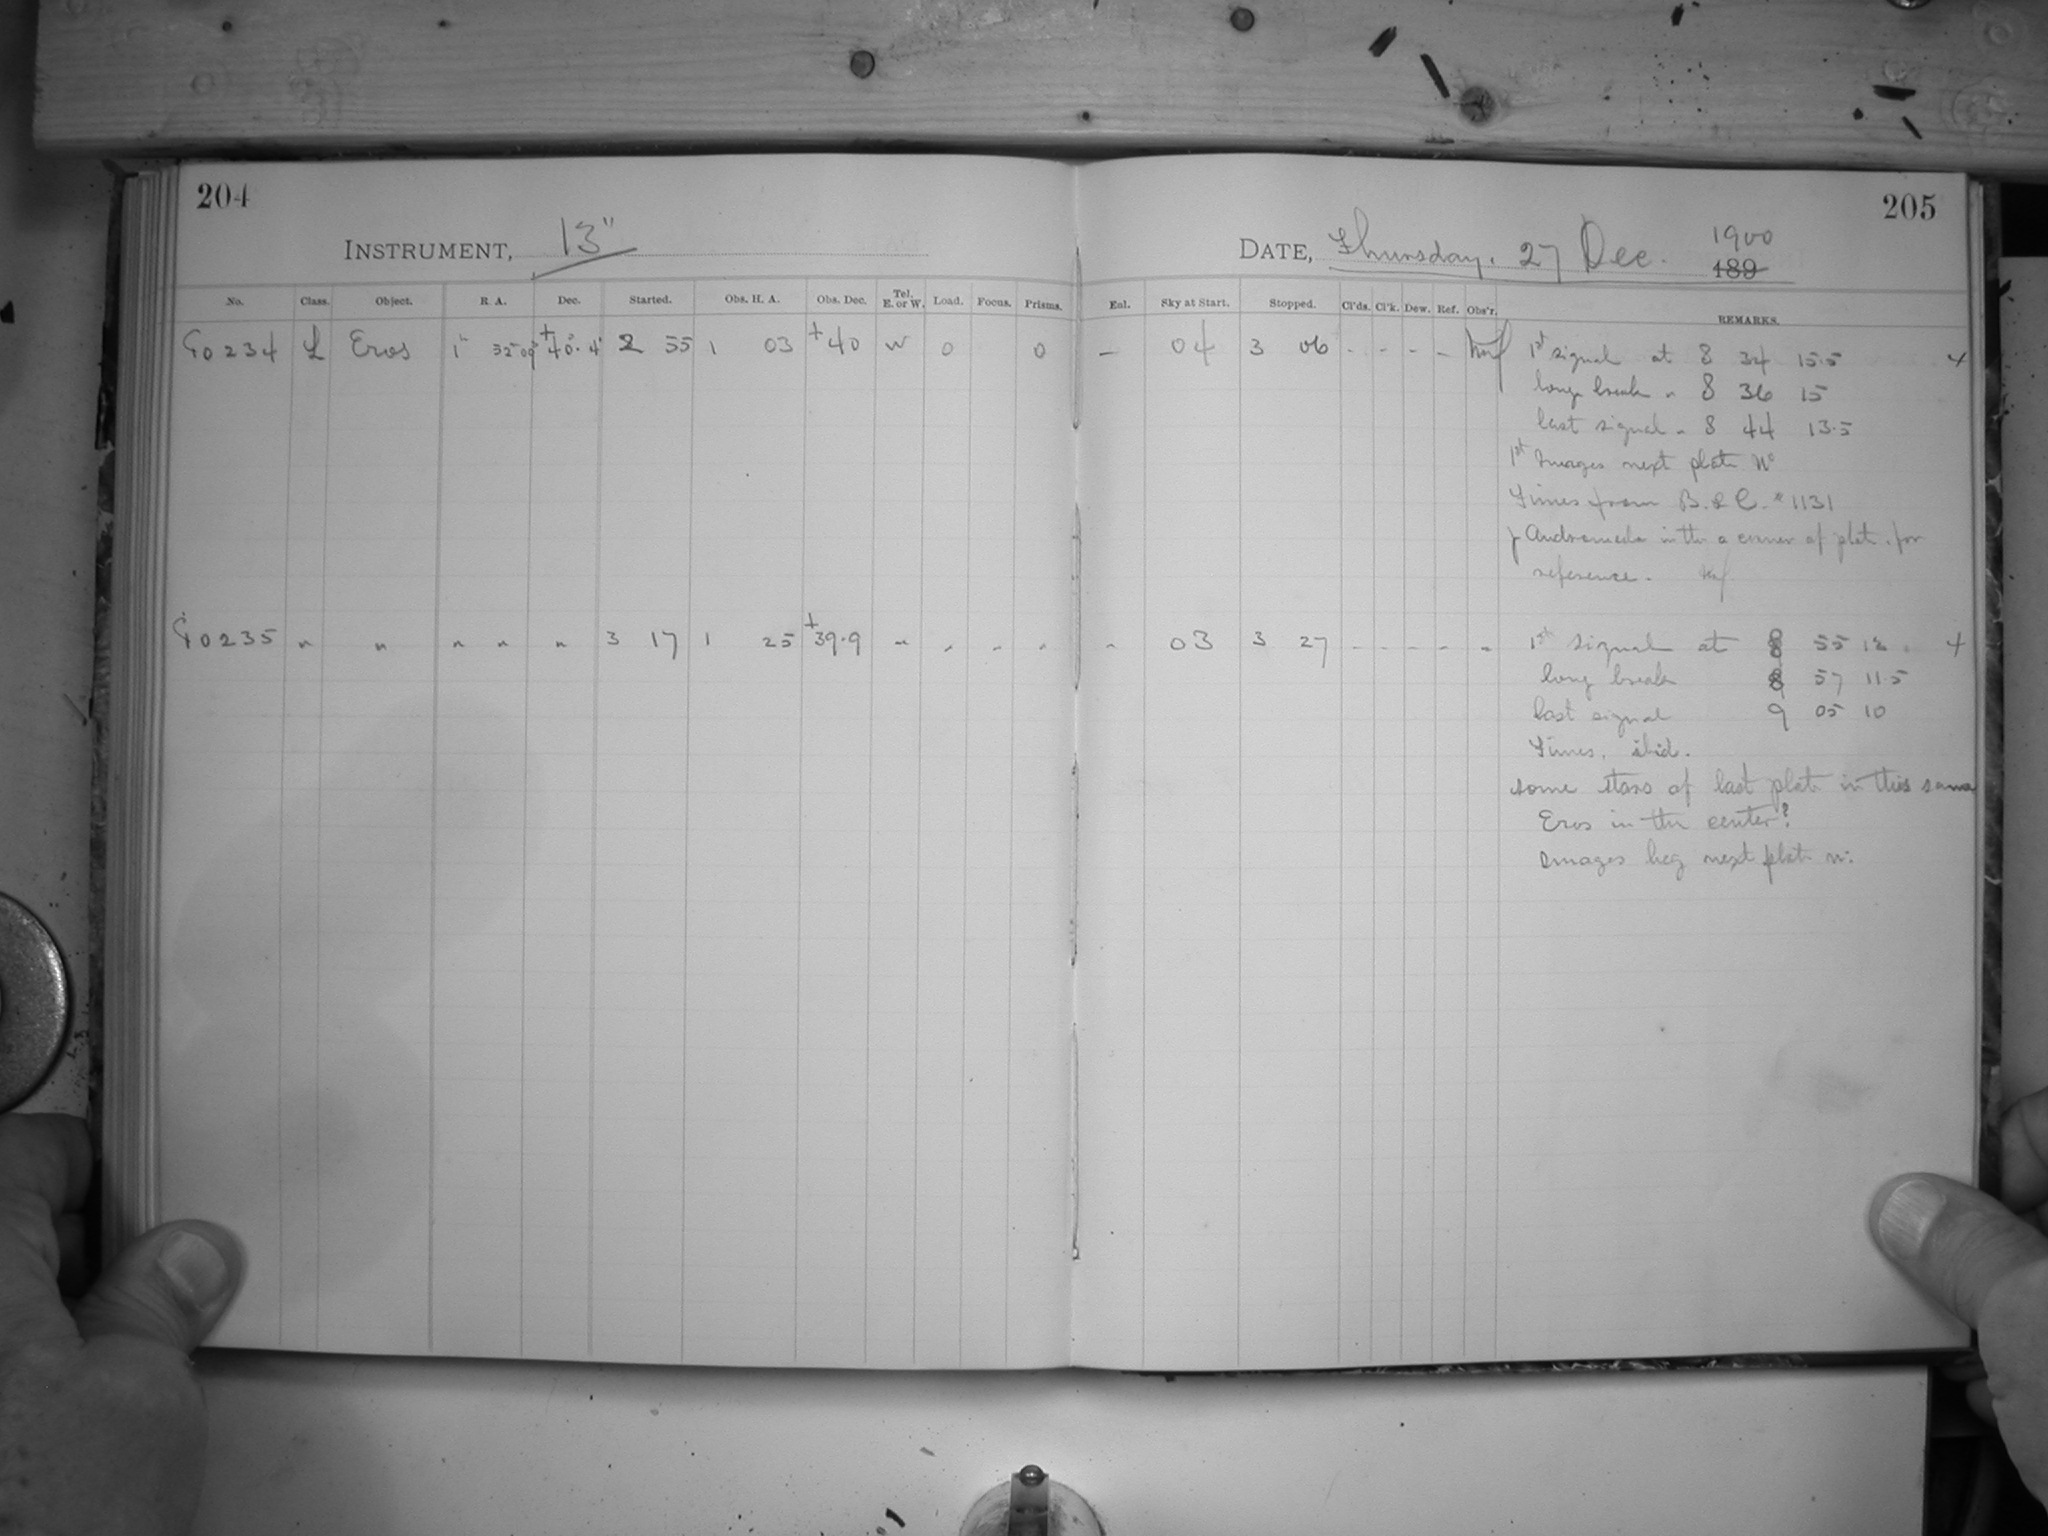 204
205
INSTRUMENT, 13"
DATE, Thursday. 27 Dec. 1900 189
No. Class. Object. R. A. Dec. Started. Obs. H. A. Obs. Dec. Tel. E. or W. Load. Focus. Prisms. Enl. Sky at Start. Stopped. Cl'ds. Cl'k. Dew. Ref. Obs'r. REMARKS.
0234 L Eros 1h 32 09 +40°.4' 2 55 1 03 +40 W 0 0 – 04 3 06 - - - - 1st signal at 8 34 15.5
long break " 8 36 15
last signal " 8 44 13.5
1st Images next plate No
Times from B. & C. # 1131
γ Andromeda in the a corner of plate for
reference.
0235 " " " " " 3 17 1 25 +39.9 " " " " " " 03 3 27 - - - - " 1st signal at 8 55 12
long break 8 57 11.5
last signal 9 05 10
Times. ibid.
some stars of last plate in this same
Eros in the center?
Images beg next plate n: